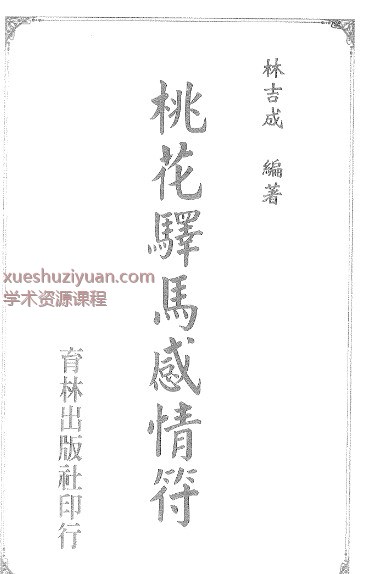 林吉成 編著
桃花驛馬感情符
xueshuziyuan.com
学术资源课程
育林出版社印行